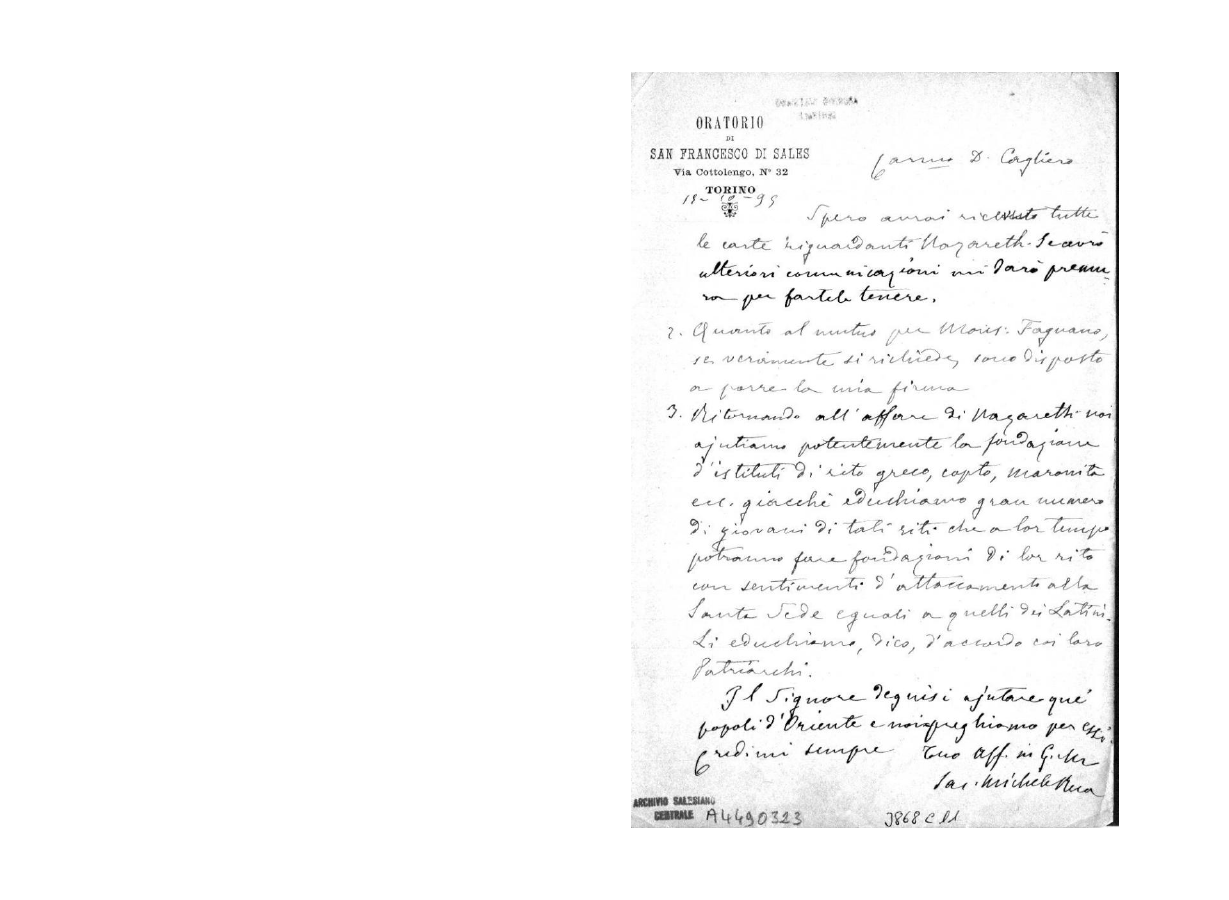 ORATORIO
DI
SAN FRANCESCO DI SALES
Via Cottolengo, N° 32
TORINO
Car.mo D. Cagliero
Spero avrai ricevuto tutte
le carte riguardanti Nazareth. Se avrò
ulteriori comunicazioni mi darò premu-
ra per fartele tenere.
2. Quanto al mutuo per Mons: Fagnano,
se veramente si richiede, sono disposto
a porre la mia firma
3. Ritornando all'affare di Nazareth noi
ajutiamo potentemente la fondazione
d'istituti di rito greco, copto, maronita
ecc. giacchè educhiamo gran numero
di giovani di tali riti che a lor tempo
potranno fare fondazioni di lor rito
con sentimenti d'attaccamento alla
Santa Sede eguali a quelli dei Latini.
Li educhiamo, dico, d'accordo coi loro
Patriarchi.
Il Signore degnisi ajutare que'
popoli d'Oriente e noi preghiamo per essi.
Credimi sempre Tuo Aff. in G. e M.
Sac. Michele Rua
ARCHIVIO SALESIANO
CENTRALE A4490323